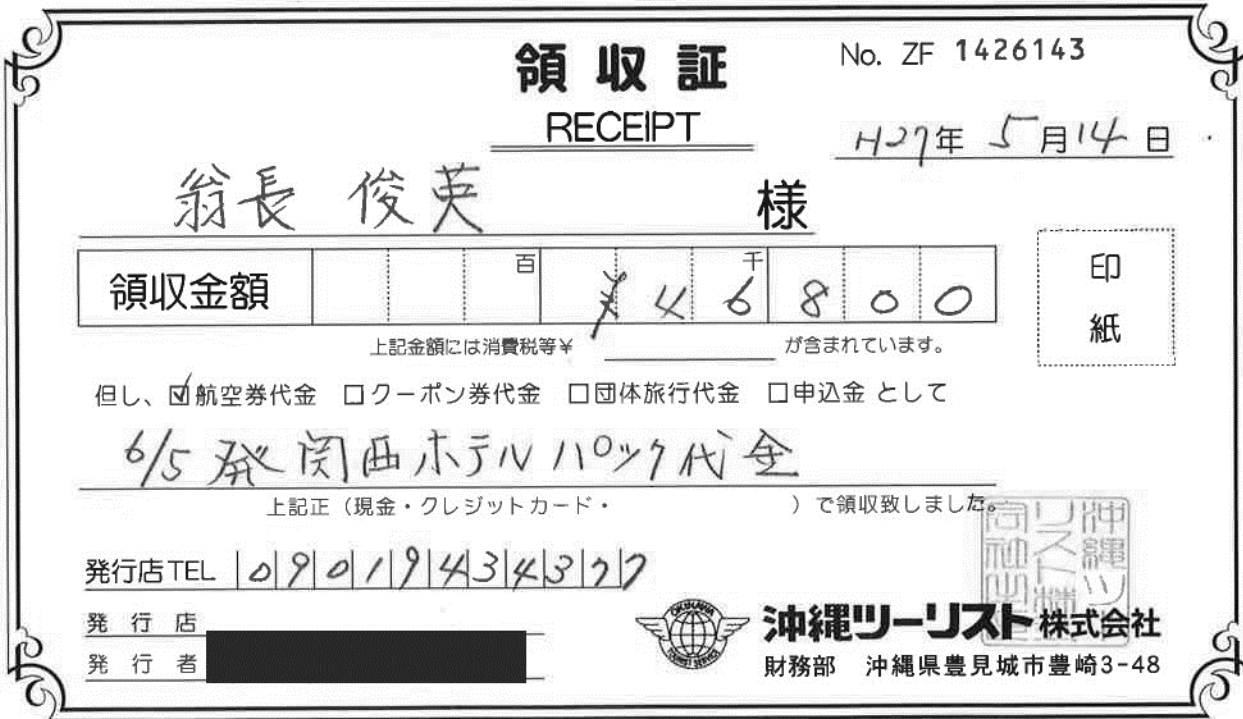 領収証
No. ZF 1426143
RECEIPT
H27年 5月14日
翁長 俊英 様
領収金額 百 千 ¥46800
印紙
上記金額には消費税等¥ が含まれています。
但し、☑航空券代金 □クーポン券代金 □団体旅行代金 □申込金 として
6/5 発 関西ホテルパック代金
上記正（現金・クレジットカード・ ）で領収致しました。
発行店TEL 09019434377
発行店
発行者
OKINAWA TOURIST SERVICE
沖縄ツーリスト株式会社
財務部 沖縄県豊見城市豊崎3-48